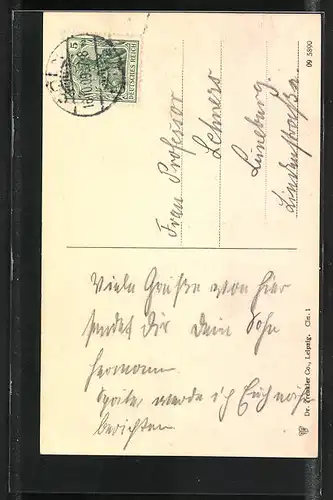 5
DEUTSCHES REICH
09 5890
Frau Professor
Lehners
Lüneburg.
Lindenstraße
Viele Grüße von hier
sendet dir dein Sohn
Hermann
Später werde ich Euch noch
berichten
Dr. Trenkler Co., Leipzig. Cln. 1